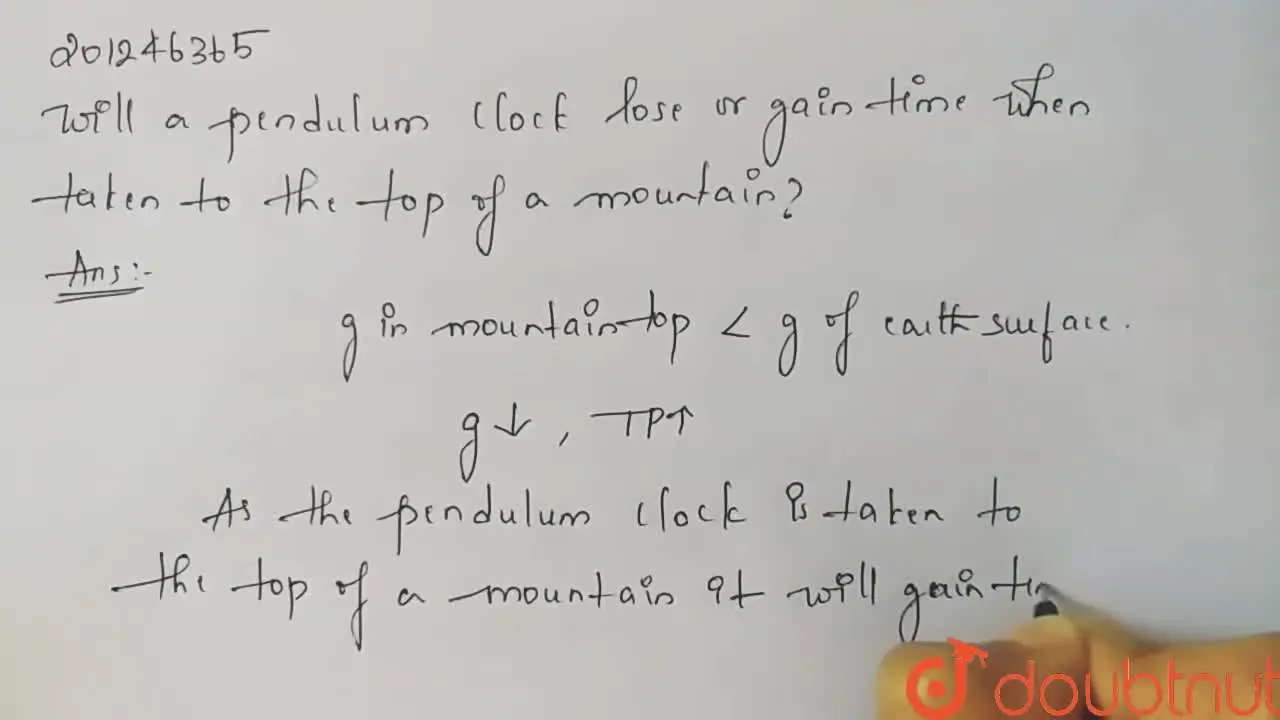 201246365
Will a pendulum clock lose or gain time when
taken to the top of a mountain?
Ans:-
g in mountain top < g of earth surface.
g↓, TP↑
As the pendulum clock is taken to
the top of a mountain it will gain
doubtnut